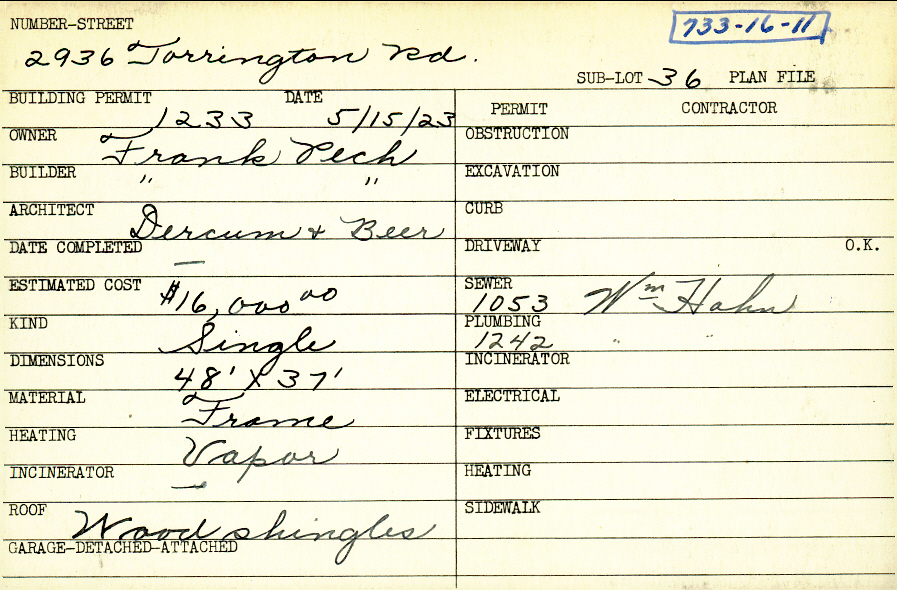 NUMBER-STREET
733-16-11
2936 Torrington Rd.
SUB-LOT 36 PLAN FILE
BUILDING PERMIT DATE
1233 5/15/23
OWNER Frank Pech
BUILDER " "
ARCHITECT Dercum & Beer
DATE COMPLETED —
ESTIMATED COST $16,000 00
KIND Single
DIMENSIONS 48' X 37'
MATERIAL Frame
HEATING Vapor
INCINERATOR —
ROOF Wood shingles
GARAGE-DETACHED-ATTACHED
PERMIT CONTRACTOR
OBSTRUCTION
EXCAVATION
CURB
DRIVEWAY O.K.
SEWER
1053 Wm Hahn
PLUMBING
1242 " "
INCINERATOR
ELECTRICAL
FIXTURES
HEATING
SIDEWALK